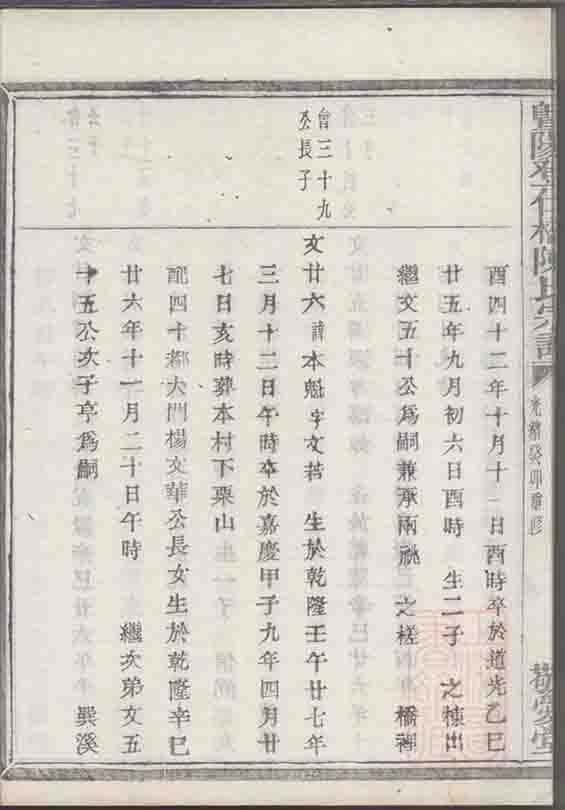 酉四十二年十月十一日酉時卒於道光乙巳
廿五年九月初六日酉時　生二子　之棟出
繼文五十公為嗣兼承兩祧　之槎　橋裨
曾三十九
公長子
文廿六諱本魁字文若　生於乾隆壬午廿七年
三月十二日午時卒於嘉慶甲子九年四月廿
七日亥時葬本村下栗山
配四十都大門楊文華公長女生於乾隆辛巳
廿六年十一月二十日午時　繼次弟文五
十五公次子亨為嗣　巽溪
陳氏宗譜
光緒癸卯重修
敬愛堂